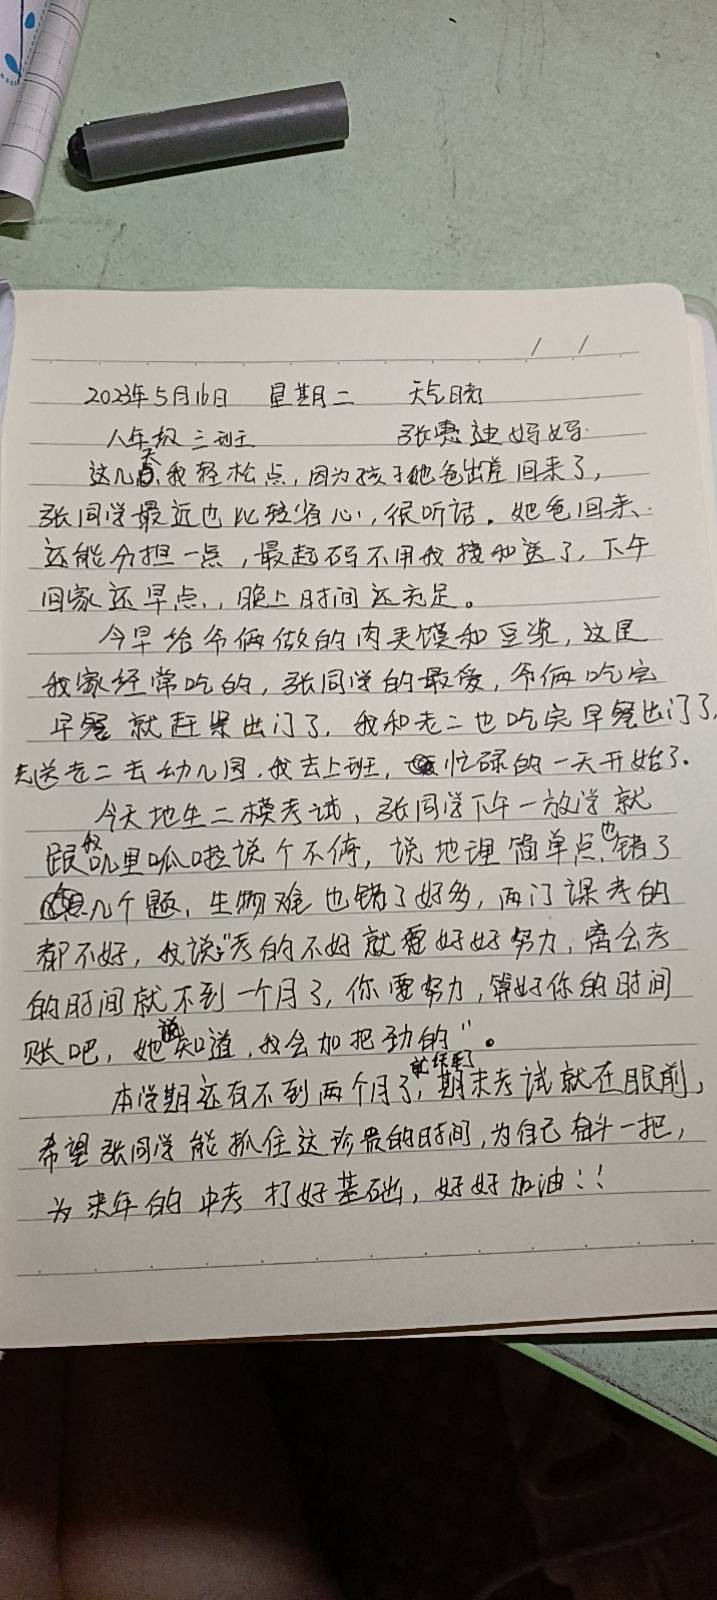 2023年5月16日 星期二 天气晴
八年级三班 张惠迪妈妈
这几天我轻松点，因为孩子她爸出差回来了，
张同学最近也比较省心，很听话。她爸回来、
还能分担一点，最起码不用我接和送了，下午
回家还早点，晚上时间还充足。
今早给爷俩做的肉夹馍和豆浆，这是
我家经常吃的，张同学的最爱，爷俩吃完
早餐就赶紧出门了，我和老二也吃完早餐出门了，
送老二去幼儿园，我去上班，忙碌的一天开始了。
今天地生二模考试，张同学下午一放学就
跟我叽里呱啦说个不停，说地理简单点，也错了
几个题，生物难也错了好多，两门课考的
都不好，我说：“考的不好就要好好努力，离会考
的时间就不到一个月了，你要努力，算好你的时间
账吧，她说知道，我会加把劲的”。
本学期还有不到两个月了就结束了，期末考试就在眼前，
希望张同学能抓住这珍贵的时间，为自己奋斗一把，
为来年的中考打好基础，好好加油！！